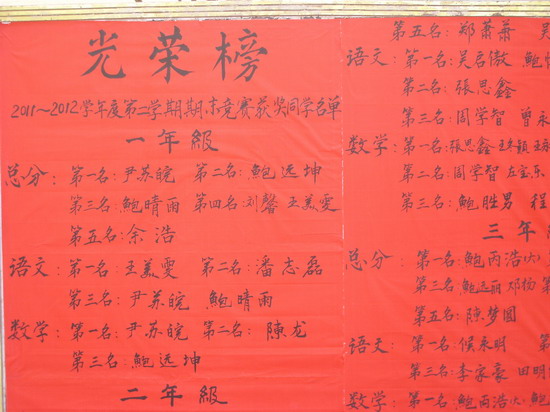 光荣榜
2011～2012学年度第二学期期末竞赛获奖同学名单
一年級
总分：第一名：尹苏皖 第二名：鲍远坤
第三名：鲍晴雨 第四名：刘馨 王美雯
第五名：余浩
语文：第一名：王美雯 第二名：潘志磊
第三名：尹苏皖 鲍晴雨
数学：第一名：尹苏皖 第二名：陳龙
第三名：鲍远坤
二年級
第五名：郑萧萧 吴
语文：第一名：吴启傲 鲍
第二名：張思鑫
第三名：周学智 曾永
数学：第一名：張思鑫
第二名：周学智 左宝乐
第三名：鲍胜男 程
三年
总分：第一名：鲍丙浩(大)
第三名：鲍远丽 邓杨 第
第五名：陳梦圆
语文：第一名：候永明 第
第三名：李家豪 田明
数学：第一名：鲍丙浩(大) 鲍